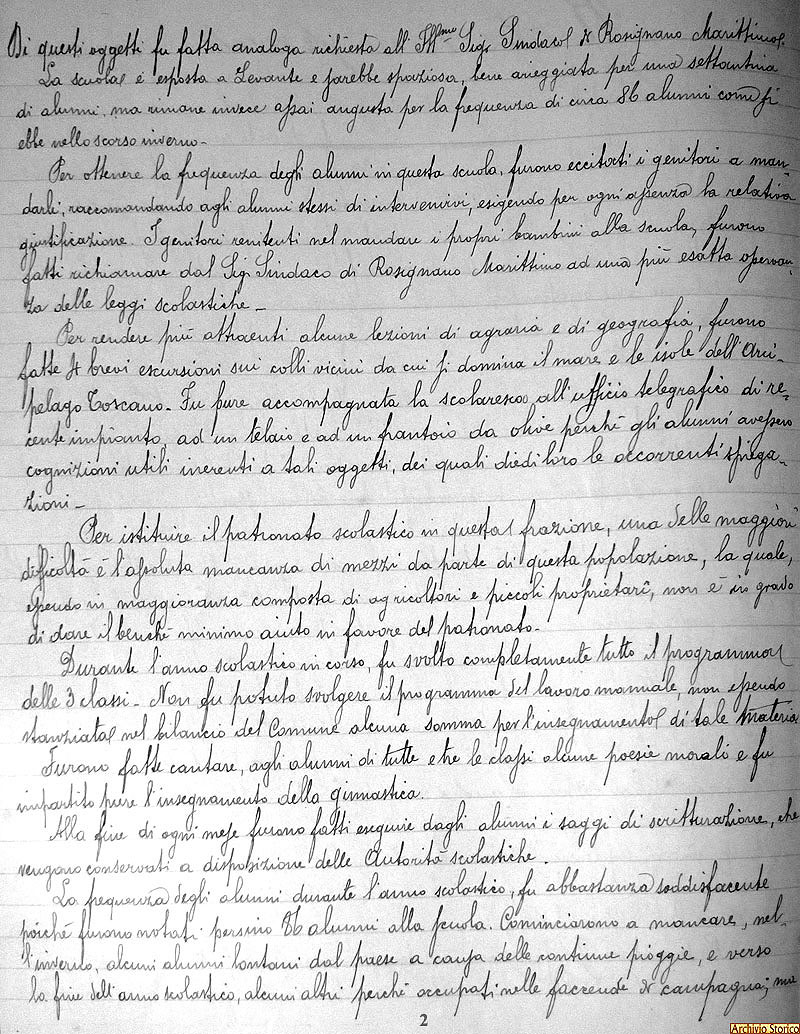 Di questi oggetti fu fatta analoga richiesta all'Illmo Sigr Sindaco di Rosignano Marittimo.
La scuola è esposta a Levante e sarebbe spaziosa, bene arieggiata per una settantina
di alunni, ma rimane invece assai angusta per la frequenza di circa 86 alunni come si
ebbe nello scorso inverno.-
Per ottenere la frequenza degli alunni in questa scuola, furono eccitati i genitori a man-
darli, raccomandando agli alunni stessi di intervenirvi, esigendo per ogni assenza la relativa
giustificazione. I genitori renitenti nel mandare i propri bambini alla scuola, furono
fatti richiamare dal Sig. Sindaco di Rosignano Marittimo ad una più esatta osservan-
za delle leggi scolastiche.-
Per rendere più attraenti alcune lezioni di agraria e di geografia, furono
fatte brevi escursioni sui colli vicini da cui si domina il mare e le isole dell'Arci-
pelago Toscano. Fu pure accompagnata la scolaresca all'ufficio telegrafico di re-
cente impianto, ad un telaio e ad un frantoio da olive perchè gli alunni avessero
cognizioni utili inerenti a tali oggetti, dei quali diedi loro le occorrenti spiega-
zioni.-
Per istituire il patronato scolastico in questa frazione, una delle maggiori
difficoltà è l'assoluta mancanza di mezzi da parte di questa popolazione, la quale,
essendo in maggioranza composta di agricoltori e piccoli proprietarî, non è in grado
di dare il benchè minimo aiuto in favore del patronato.-
Durante l'anno scolastico in corso, fu svolto completamente tutto il programma
delle 3 classi.- Non fu potuto svolgere il programma del lavoro manuale, non essendo
stanziata nel bilancio del Comune alcuna somma per l'insegnamento di tale materia
Furono fatte cantare, agli alunni di tutte e tre le classi alcune poesie morali e fu
impartito pure l'insegnamento della ginnastica.
Alla fine di ogni mese furono fatti eseguire dagli alunni i saggi di scritturazione, che
vengono conservati a disposizione delle Autorità scolastiche.
La frequenza degli alunni durante l'anno scolastico, fu abbastanza soddisfacente
poichè furono notati persino 86 alunni alla scuola. Cominciarono a mancare, nel-
l'inverno, alcuni alunni lontani dal paese a causa delle continue pioggie, e verso
la fine dell'anno scolastico, alcuni altri perchè occupati nelle faccende di campagna; ma
2
Archivio Storico